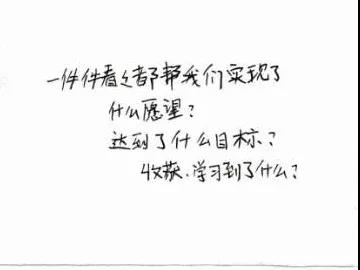 一件件看过都帮我们实现了
什么愿望？
达到了什么目标？
收获、学习到了什么？